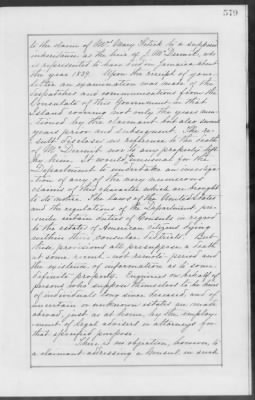 579
to the claim of Mrs Mary Fetick to a supposed
inheritance as the heir of J. McDermot, who
is represented to have died in Jamaica about
the year 1839. Upon the receipt of your
letter an examination was made of the
despatches and communications from the
Consulate of this Government in that
Island covering not only the years men-
tioned by the claimant but also some
years prior and subsequent. The re-
sult discloses no reference to the death
of McDermot nor to any property left
by him. It would be unusual for the
Department to undertake an investiga-
tion of any of the many numerous
claims of this character which are brought
to its notice. The laws of the United States
and the regulations of the Department pre-
scribe certain duties of Consuls in regard
to the estates of American citizens dying
within their consular districts. But
these provisions all presuppose a death
at some recent - not remote - period and
the existence of information as to some
definite property. Inquiries on behalf of
persons who suppose themselves to be heirs
of individuals long since deceased, and of
uncertain or unknown estates are made
abroad, just as at home, by the employ-
ment of legal advisers or attorneys for
that specified purpose.
There is no objection, however, to
a claimant addressing a Consul in such